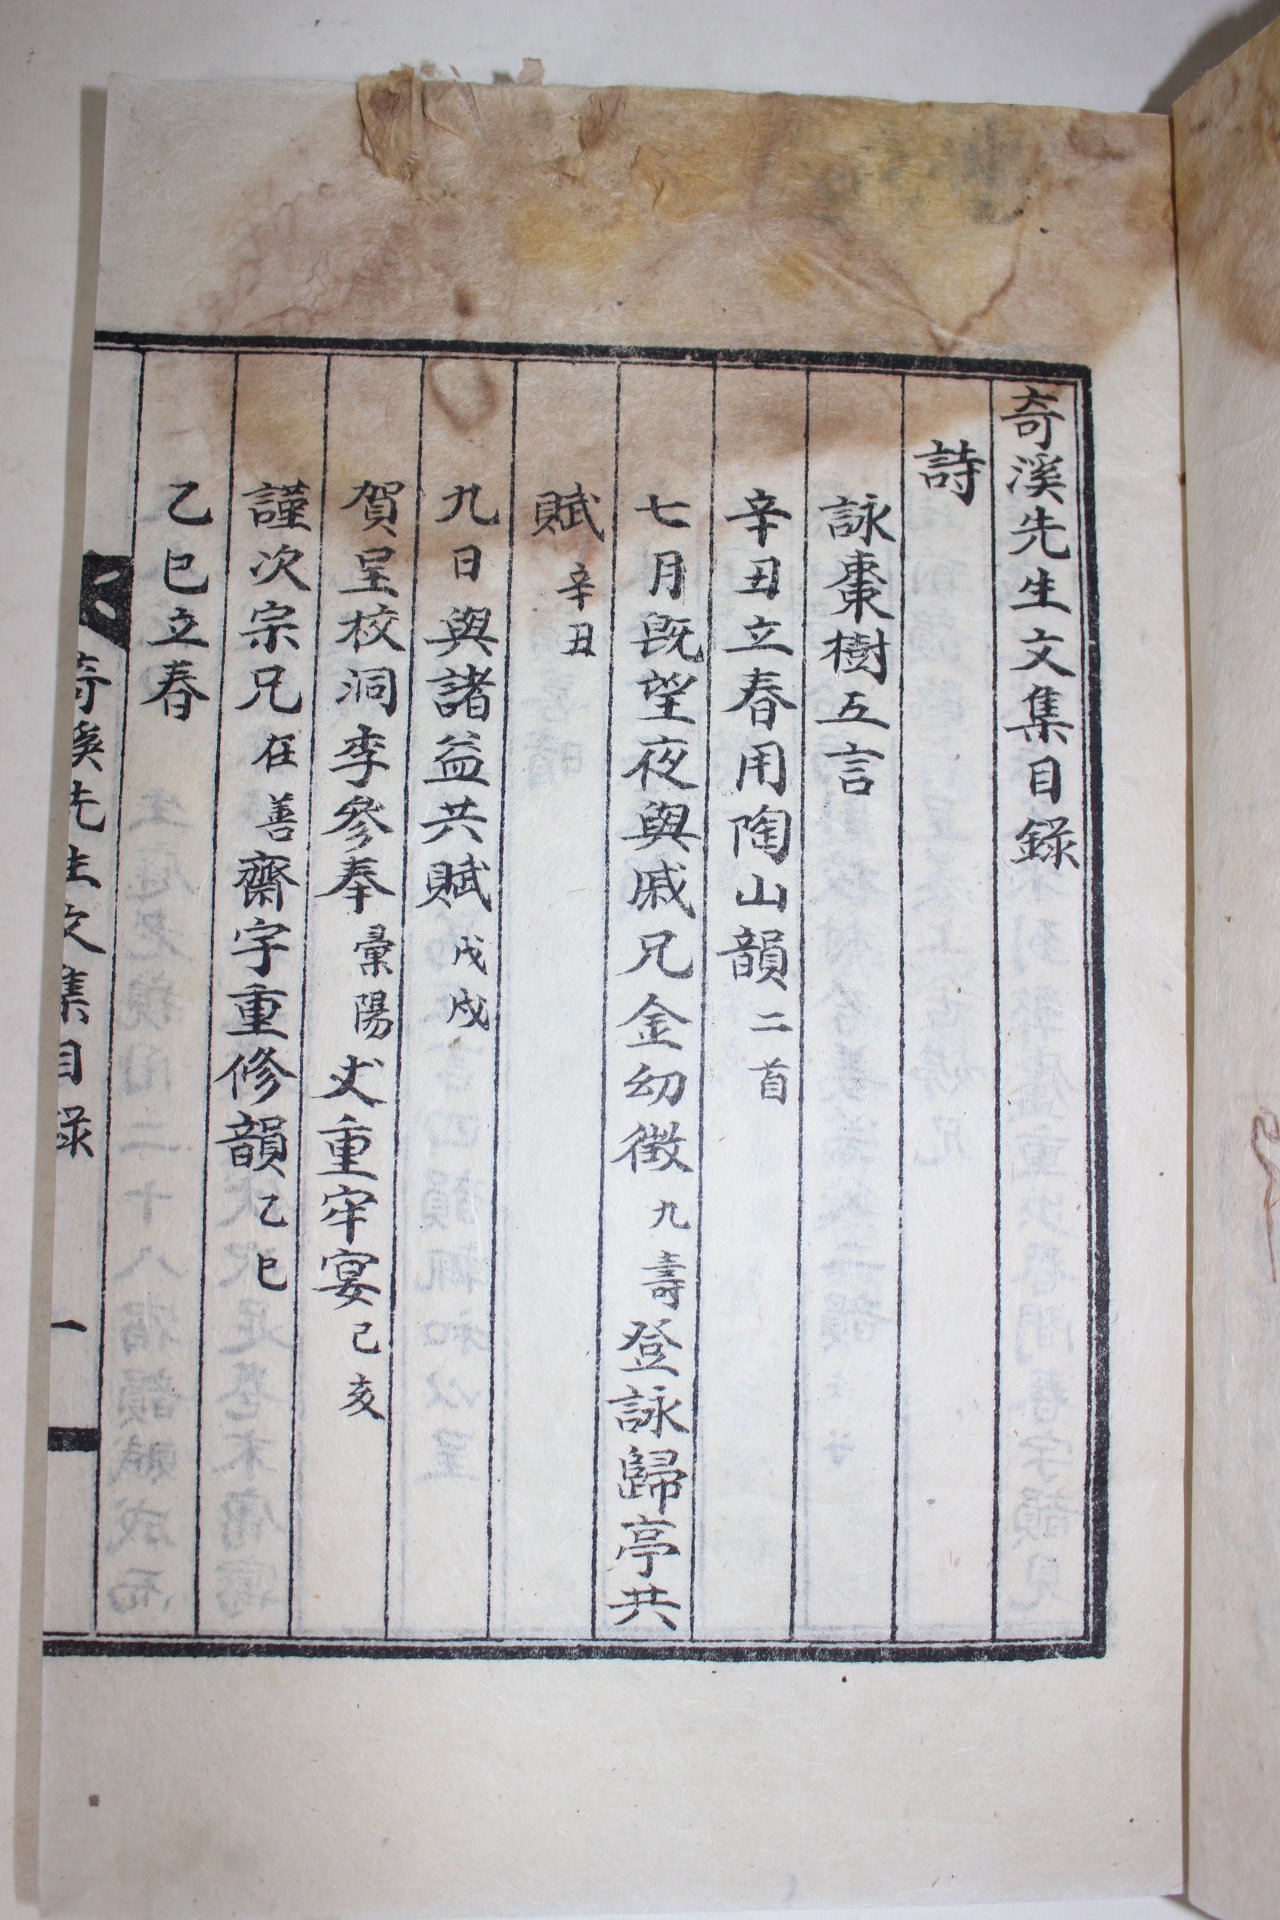 奇溪先生文集目錄
詩
詠棗樹五言
辛丑立春用陶山韻二首
七月旣望夜與戚兄金幼徵九壽登詠歸亭共
賦辛丑
九日與諸益共賦戊戌
賀呈校洞李參奉彙陽丈重牢宴己亥
謹次宗兄在善齋宇重修韻乙巳
乙巳立春
奇溪先生文集目錄
一